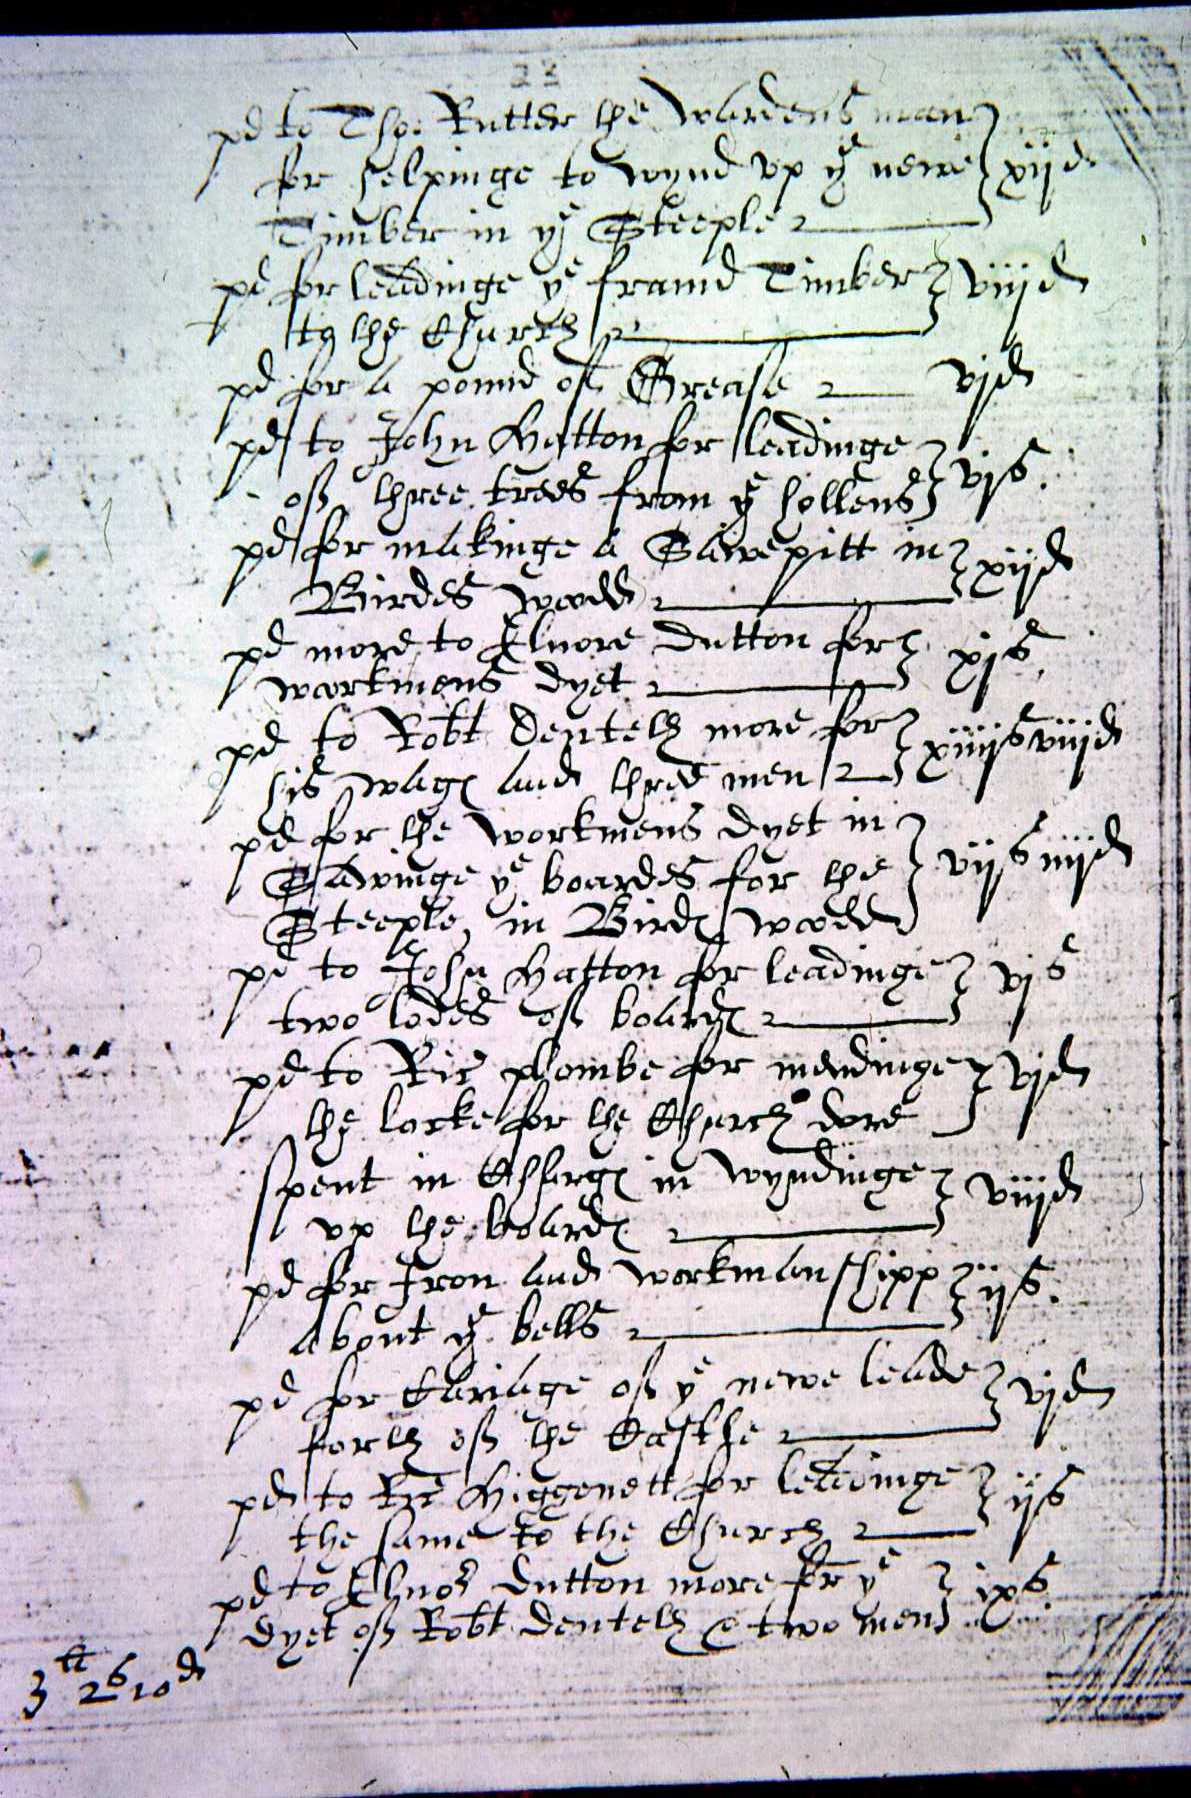 23
pd to Tho: Rutter the Wardens man
for helpinge to wynd vp ye newe xijd
Timber in ye Steeple
pd for leadinge ye framd Timber viijd
to the Church
pd for a pound of Grease vjd
pd to John Hatton for leadinge
of three trees from ye hollens vjs.
pd for makinge a Sawepitt in xijd
Birdes wood
pd more to Elnore Dutton for xjs.
workmens dyet
pd to Robt Dentith more for xiiijs viijd
his wages and three men
pd for the workmens dyet in
Sawinge ye boardes for the vijs iiijd
Steeple in Birds wood
pd to John Hatton for leadinge vjs
two lodes of boards
pd to Ric plombe for mendinge vjd
the locke for the Church dore
spent in Charges in wyndinge viijd
vp the boards
pd for Iron and workmanshipp ijs.
about ye bells
pd for Cariage of ye newe leade vjd
forth of the
pd to Ric Higgenett for leadinge ijs
the same to the Church
pd to Elnor Dutton more for ye ixs.
dyet of Robt dentith & two men
3li 2s 10d